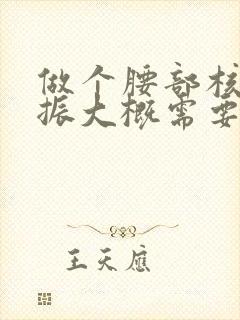 做个腰部核
振大概需要
王天應